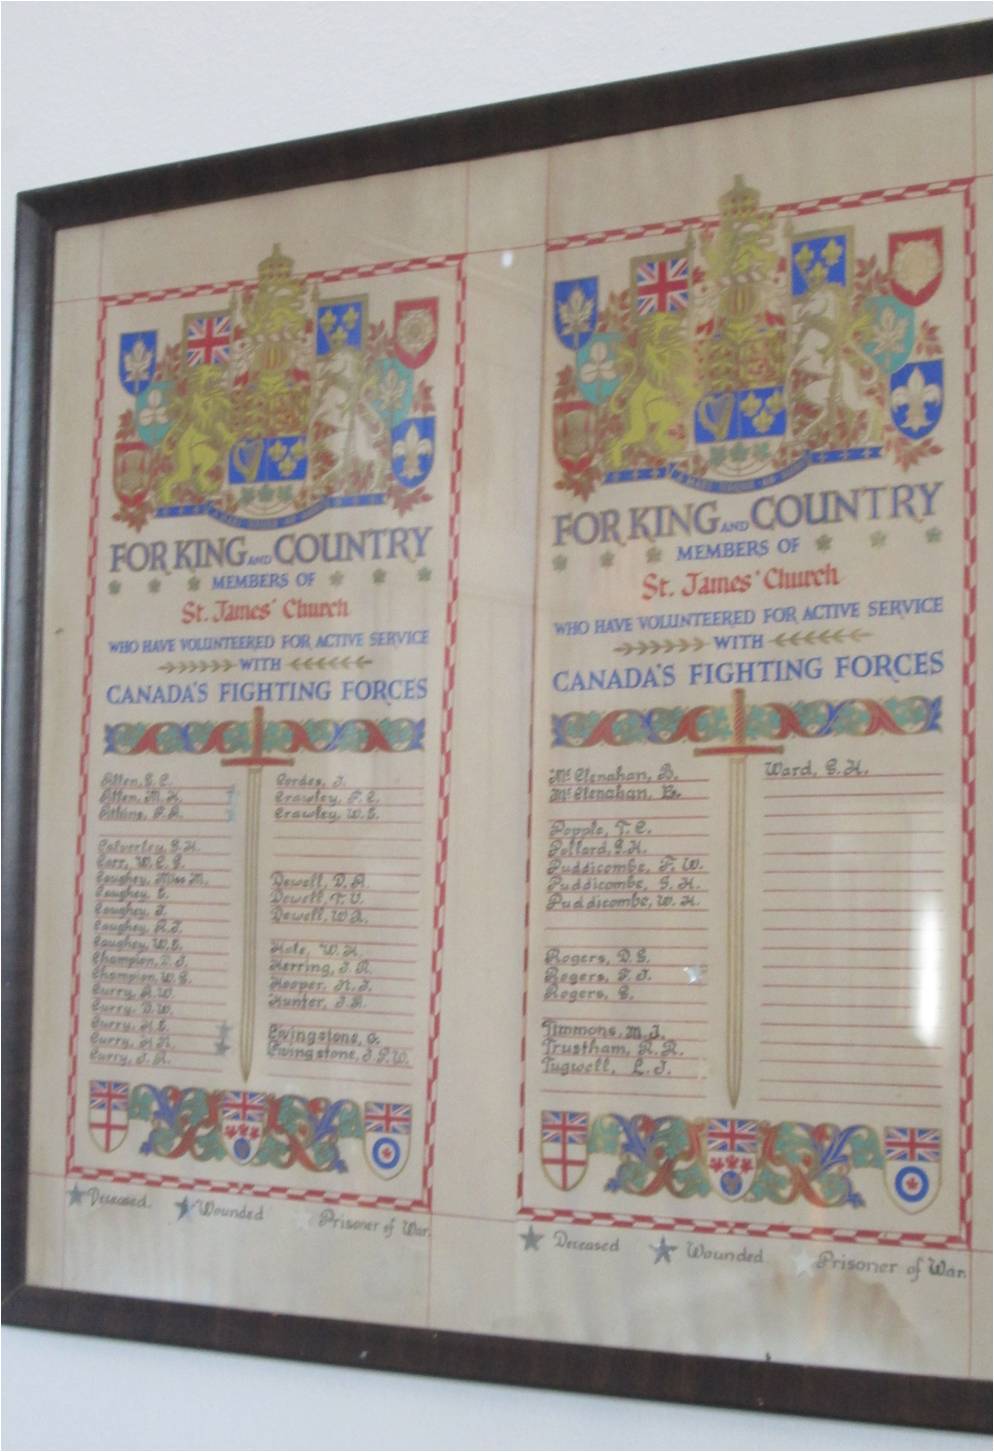 FOR KING AND COUNTRY
MEMBERS OF
St. James' Church
WHO HAVE VOLUNTEERED FOR ACTIVE SERVICE
WITH
CANADA'S FIGHTING FORCES
Allen, M.H.
Calverley, G.H.
Carr, W.C.G.
Caughey, Miss M.
Caughey, E.
Caughey, J.
Caughey, R.J.
Caughey, W.E.
Champion, D.J.
Champion, W.G.
Curry, R.W.
Curry, D.W.
Curry, H.E.
Curry, H.H.
Curry, J.R.
Cordes, J.
Crawley, F.C.
Crawley, W.E.
Dewell, D.A.
Dewell, T.V.
Dewell, W.A.
Hale, W.H.
Herring, J.R.
Hooper, H.J.
Hunter, J.A.
Livingstone, G.
Livingstone, J.P.W.
Deceased. Wounded Prisoner of War.
FOR KING AND COUNTRY
MEMBERS OF
St. James' Church
WHO HAVE VOLUNTEERED FOR ACTIVE SERVICE
WITH
CANADA'S FIGHTING FORCES
McClenahan, B.
McClenahan, E.
Popple, T.C.
Pollard, G.H.
Puddicombe, F.W.
Puddicombe, G.H.
Puddicombe, W.H.
Rogers, D.G.
Rogers, F.J.
Rogers, G.
Timmons, M.J.
Trustham, R.R.
Tugwell, L.J.
Ward, G.H.
Deceased Wounded Prisoner of War.